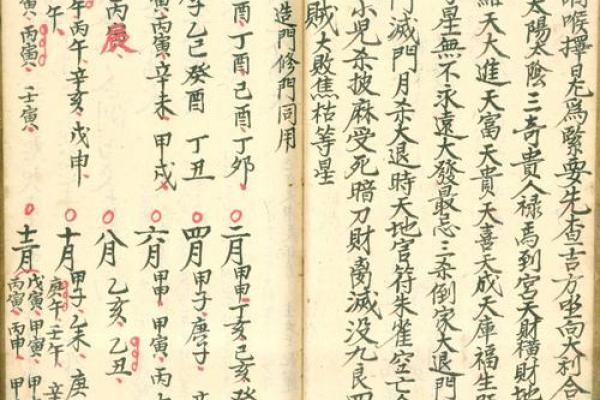 喉擇為緊要先查吉方坐向大利合
太陽太陰三奇貴人祿馬到宮天財橫財地
天大進天富天貴天喜天成天庫福生
星無不永遠大發最忌三煞倒家大退門
滅門月杀大退時天地官符朱雀空亡
小兒杀披麻受死暗刀財离滅沒九良四
賊大敗焦枯等星
造門修門同用
酉丁酉己酉丁卯
子乙巳癸酉 丁丑
丙寅辛未 甲戌
丙庚
午丙午辛亥戊申
寅丙寅 壬寅
二月 甲申丁亥己亥癸
四月 甲子庚子
六月 甲申 甲寅 丙
八月 乙亥乙丑
十月 甲子乙未 庚
庚午壬午 辛
十二月 戊寅甲寅 甲
丙寅丙申 甲